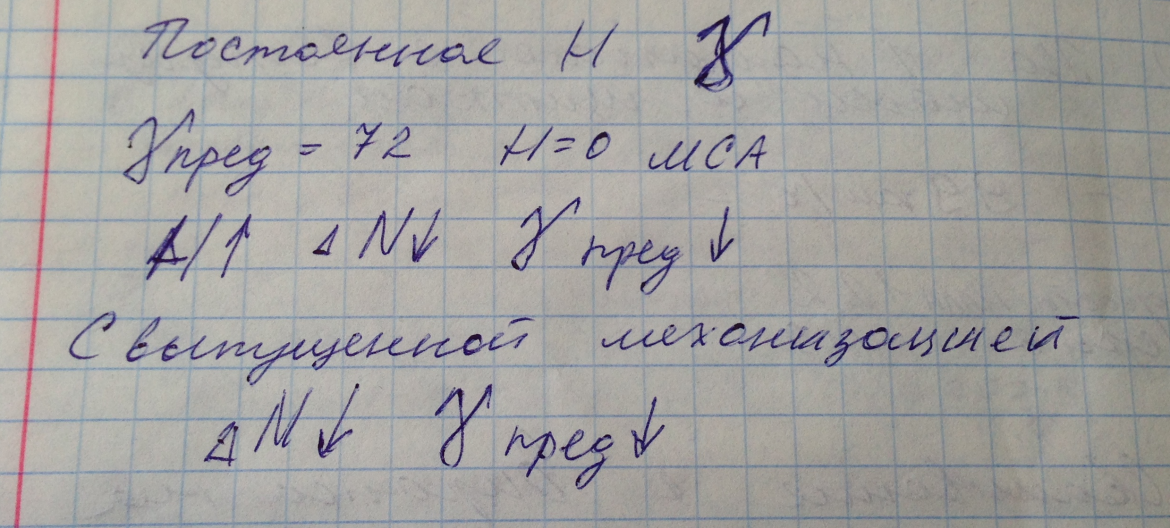 Постоянная H γ
γпред = 72 H=0 МСА
↑ ΔN↓ γ пред ↓
С выпущенной механизацией
ΔN↓ γ пред↓